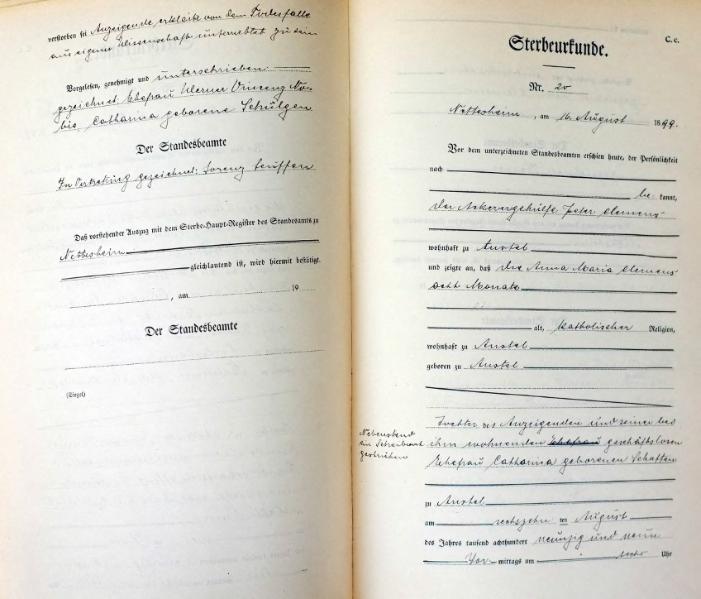 verstorben sei Anzeigende erklärte von dem Todesfalle
aus eigener Wissenschaft unterrichtet zu sein
Vorgelesen, genehmigt und unterschrieben
gezeichnet Ehefrau Werner Vincenz
Catharina geborene Schülgen
Der Standesbeamte
In Vertretung gezeichnet: Lorenz
Daß vorstehender Auszug mit dem Sterbe-Haupt-Register des Standesamts zu
Nettersheim
gleichlautend ist, wird hiermit bestätigt.
, am 19
Der Standesbeamte
(Siegel)
C. c.
Sterbeurkunde.
Nr. 20
Nettersheim, am 16 August 1899.
Vor dem unterzeichneten Standesbeamten erschien heute, der Persönlichkeit
nach
be kannt,
der Ackerergehülfe Peter Clemens
wohnhaft zu Anstel
und zeigte an, daß die Anna Maria Clemens
acht Monate
alt, katholischer Religion,
wohnhaft zu Anstel
geboren zu Anstel
Tochter des Anzeigenden und seiner bei
ihm wohnenden Ehefrau geschäftslosen
Ehefrau Catharina geborenen
Nebenstehend
ein
gestrichen
zu Anstel
am sechszehn ten August
des Jahres tausend achthundert neunzig und neun
Vor mittags um sechs Uhr